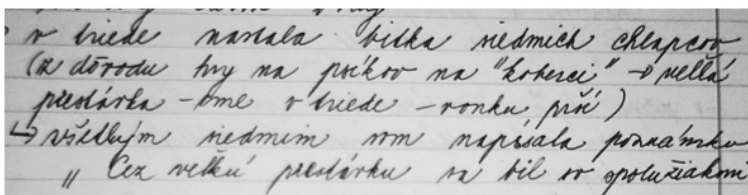 v triede nastala bitka siedmich chlapcov
(z dôvodu hry na psíkov na "koberci" → veľká
prestávka - sme v triede - vonku prší)
↳ všetkým siedmim som napísala poznámku
„ Cez veľkú prestávku sa bil so spolužiakom